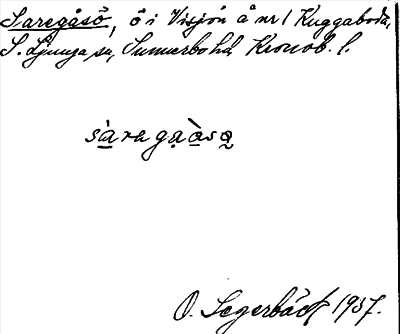 Saregåsö, ö i Visjön å nr 1 Kuggaboda,
S. Ljunga sn, Sunnerbo hd, Kronob. l.
sàrega̱àsɷ
O. Segerbäck 1937.